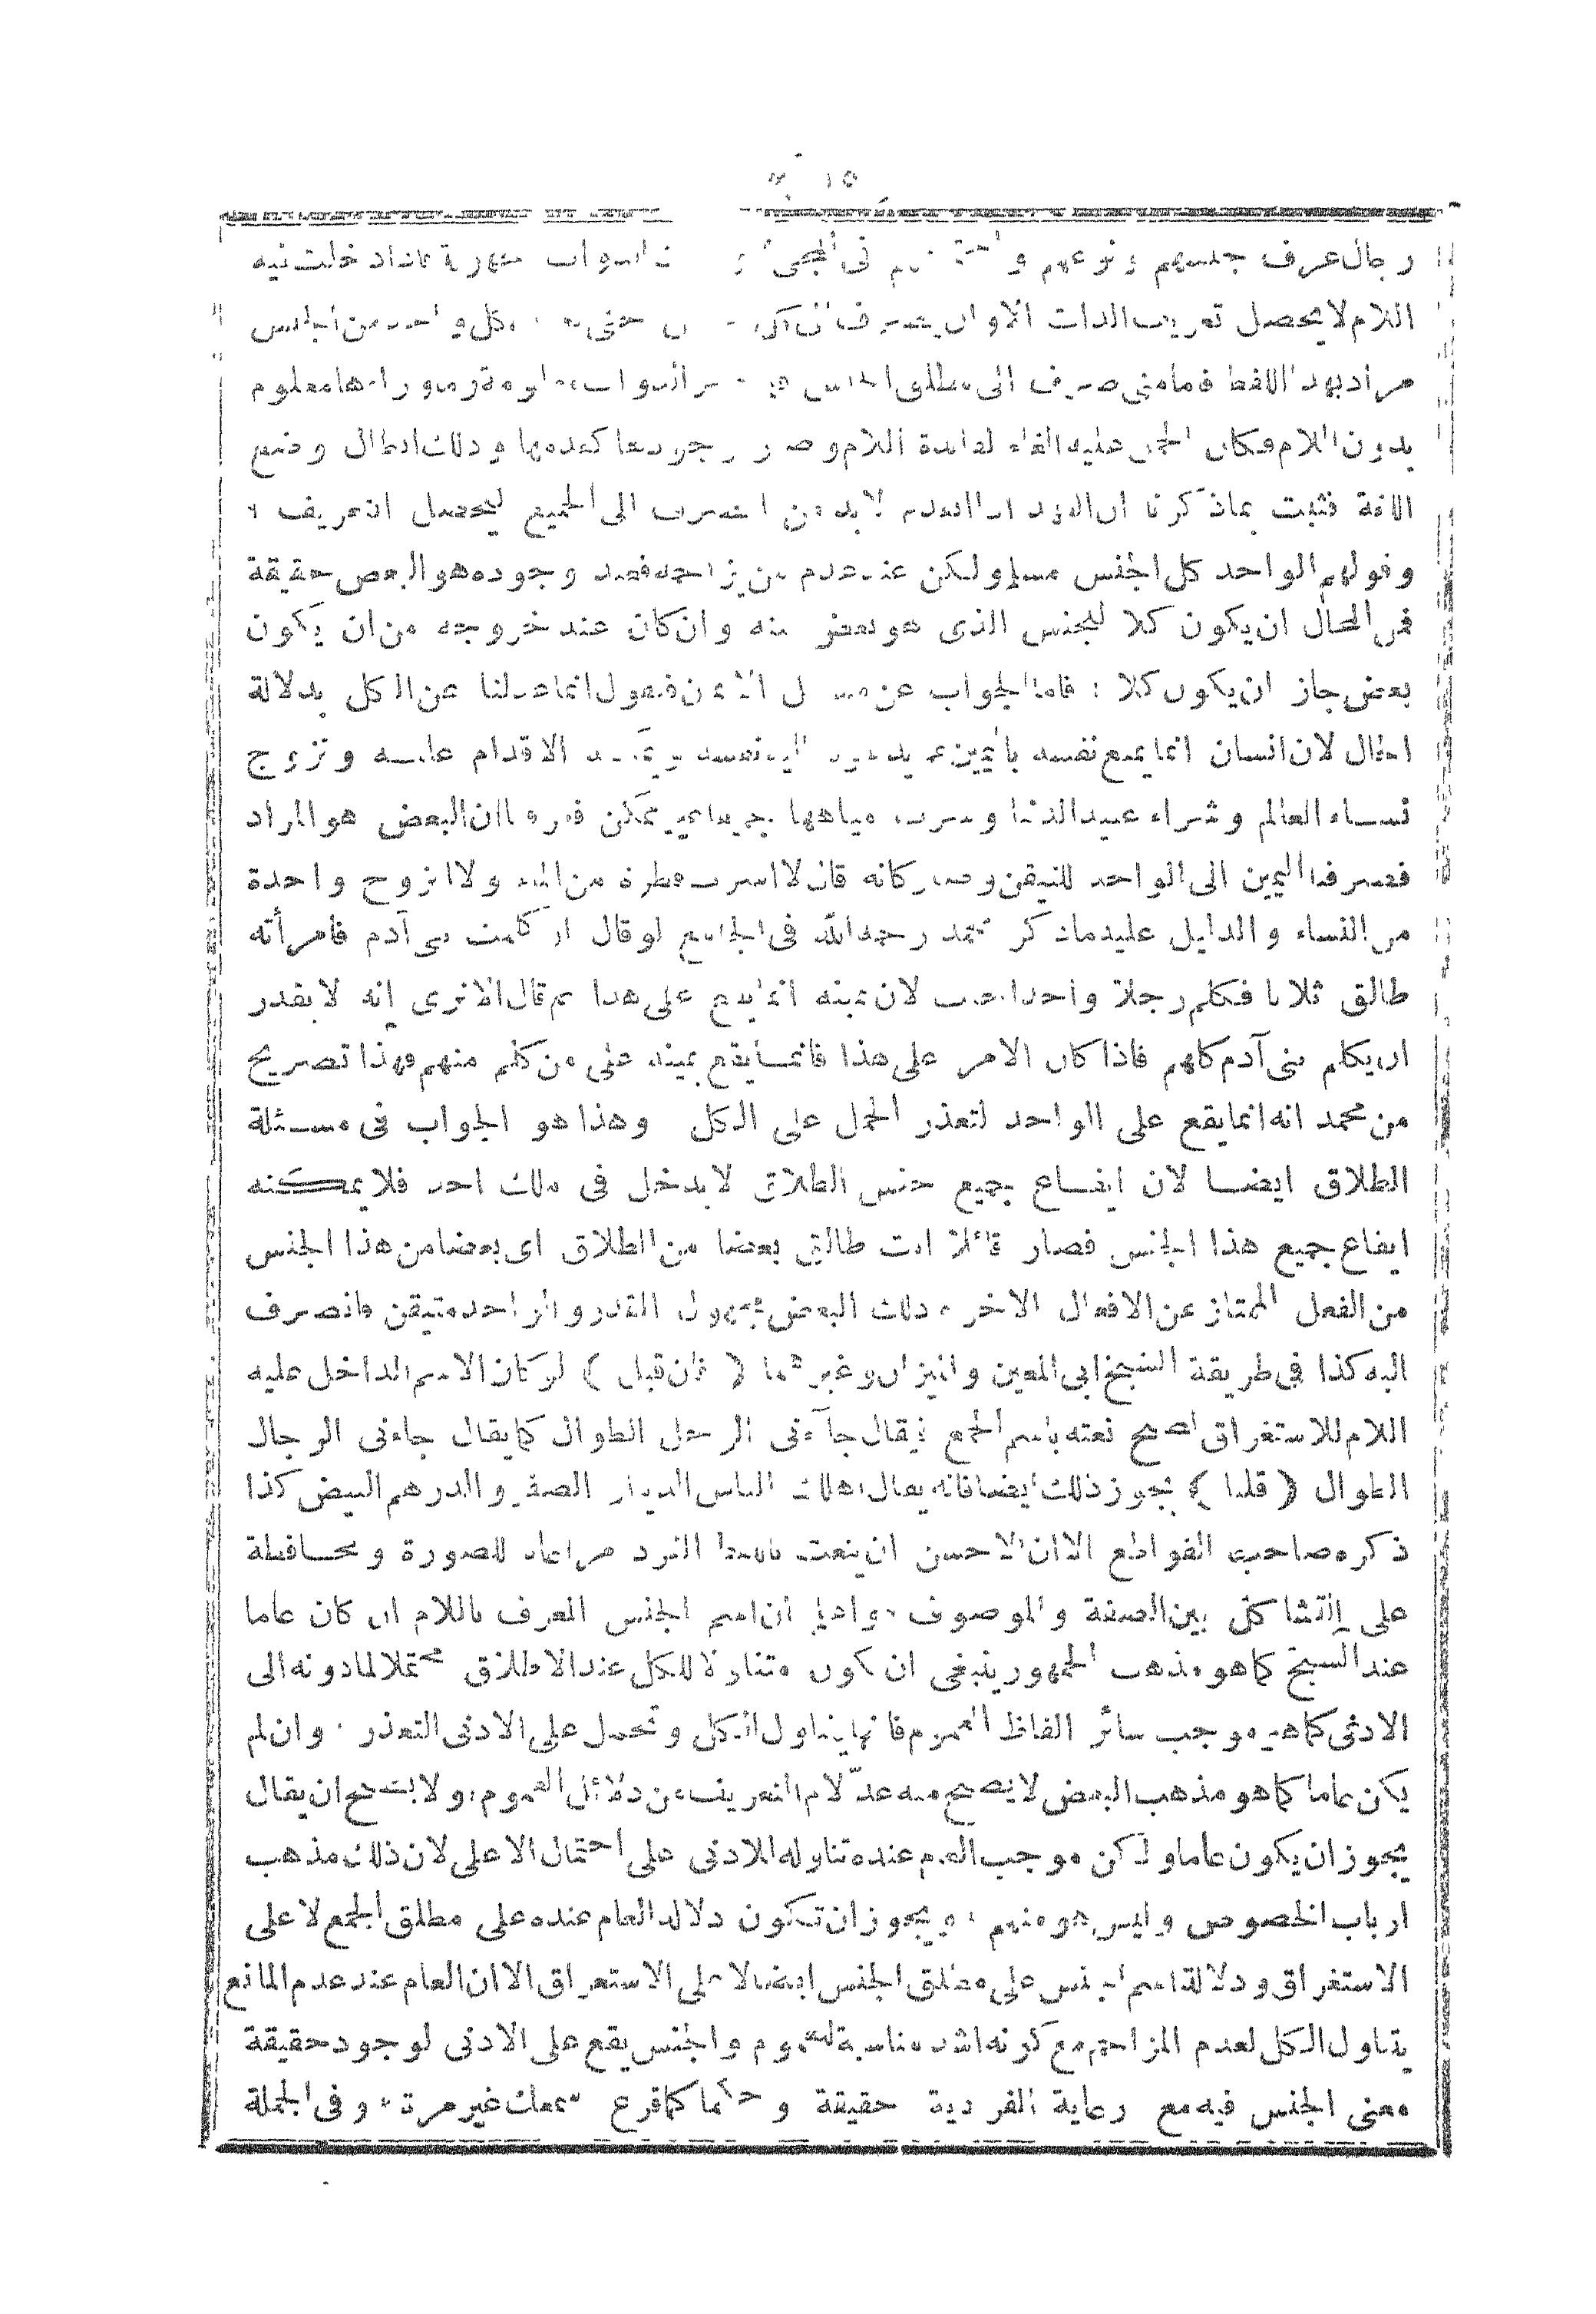 ١٥
رجال عرف جنسهم ونوعهم و فى فاذا دخلت فيه
اللام لا يحصل تعريف الذات الا وان حتى وكل واحد من الجنس
مراد بهذا اللفظ فامامتى صرف الى مطلق الجنس معلوم
بدون اللام فكان الحمل عليه الغاء لفائدة اللام وصار وجودها كعدمها وذلك ابطال وضع
اللغة فثبت بماذكرنا ان لابد من الى الجميع ليحصل التعريف
وقولهم الواحد كل الجنس مسلم ولكن عند عدم من يزاحمه فعند وجوده هو البعض حقيقة
فمن المحال ان يكون كلا للجنس الذى هو بعض منه وان كان عند خروجه من ان يكون
بعض جاز ان يكون كلا : فاما الجواب عن فنقول انما عدلنا عن الكل بدلالة
الحال لان انسان انما يمنع نفسه باليمين عما نفسه الاقدام عليه وتزوج
نساء العالم وشراء عبيد الدنيا وشرب مياهها جميعا غير ممكن ان البعض هو المراد
فصرفنا اليمين الى الواحد للتيقن وصار كانه قال لا اشرب قطرة من الماء ولا اتزوج واحدة
من النساء والدليل عليه ماذكر محمد رحمه الله فى الجامع لو قال ان كلمت بنى آدم فامرأته
طالق ثلاثا فكلم رجلا واحدا لان يمينه انما يقع على هذا ثم قال الا ترى انه لا يقدر
ان يكلم بنى آدم كلهم فاذا كان الامر على هذا فانما يقع يمينه على من كلم منهم فهذا تصريح
من محمد انه انما يقع على الواحد لتعذر الحمل على الكل وهذا هو الجواب فى مسئلة
الطلاق ايضا لان ايقاع جميع جنس الطلاق لا يدخل فى ملك احد فلا يمكنه
ايقاع جميع هذا الجنس فصار قائلا انت طالق بعضا من الطلاق اى بعضا من هذا الجنس
من الفعل الممتاز عن الافعال الاخر وذلك البعض مجهول القدر والواحد متيقن فانصرف
اليه كذا فى طريقة الشيخ ابى المعين والميزان وغيرهما ( فان قيل ) لو كان الاسم الداخل عليه
اللام للاستغراق لصح نعته باسم الجمع فيقال جآءنى الرجل الطوال كما يقال جاءنى الرجال
الطوال ( قلنا ) يجوز ذلك ايضا فانه يقال اهلك الناس الدينار الصفر والدرهم البيض كذا
ذكره صاحب القواطع الا ان الاحسن ان ينعت بلفظ الفرد مراعاة للصورة ومحافظة
على التشاكل بين الصفة والموصوف واعلم ان اسم الجنس المعرف باللام ان كان عاما
عند الشيخ كما هو مذهب الجمهور ينبغى ان يكون متناولا للكل عند الاطلاق محتملا لما دونه الى
الادنى كما هو موجب سائر الفاظ العموم فانها يتناول الكل وتحمل على الادنى التعذر . وان لم
يكن عاما كما هو مذهب البعض لا يصح منه عد لام التعريف من دلائل العموم ، ولا يصح ان يقال
يجوز ان يكون عاما ولكن موجب العام عنده تناوله للادنى على احتمال الاعلى لان ذلك مذهب
ارباب الخصوص وليس هو منهم ، ويجوز ان تكون دلالة العام عنده على مطلق الجمع لا على
الاستغراق ودلالة اسم الجنس على مطلق الجنس ايضا لا على الاستغراق الا ان العام عند عدم المانع
يتناول الكل لعدم المزاحم مع كونه اشد مناسبة للعموم والجنس يقع على الادنى لوجود حقيقة
معنى الجنس فيه مع رعاية الفردية حقيقة وحكما كما قرع سمعك غير مرة ، وفى الجملة